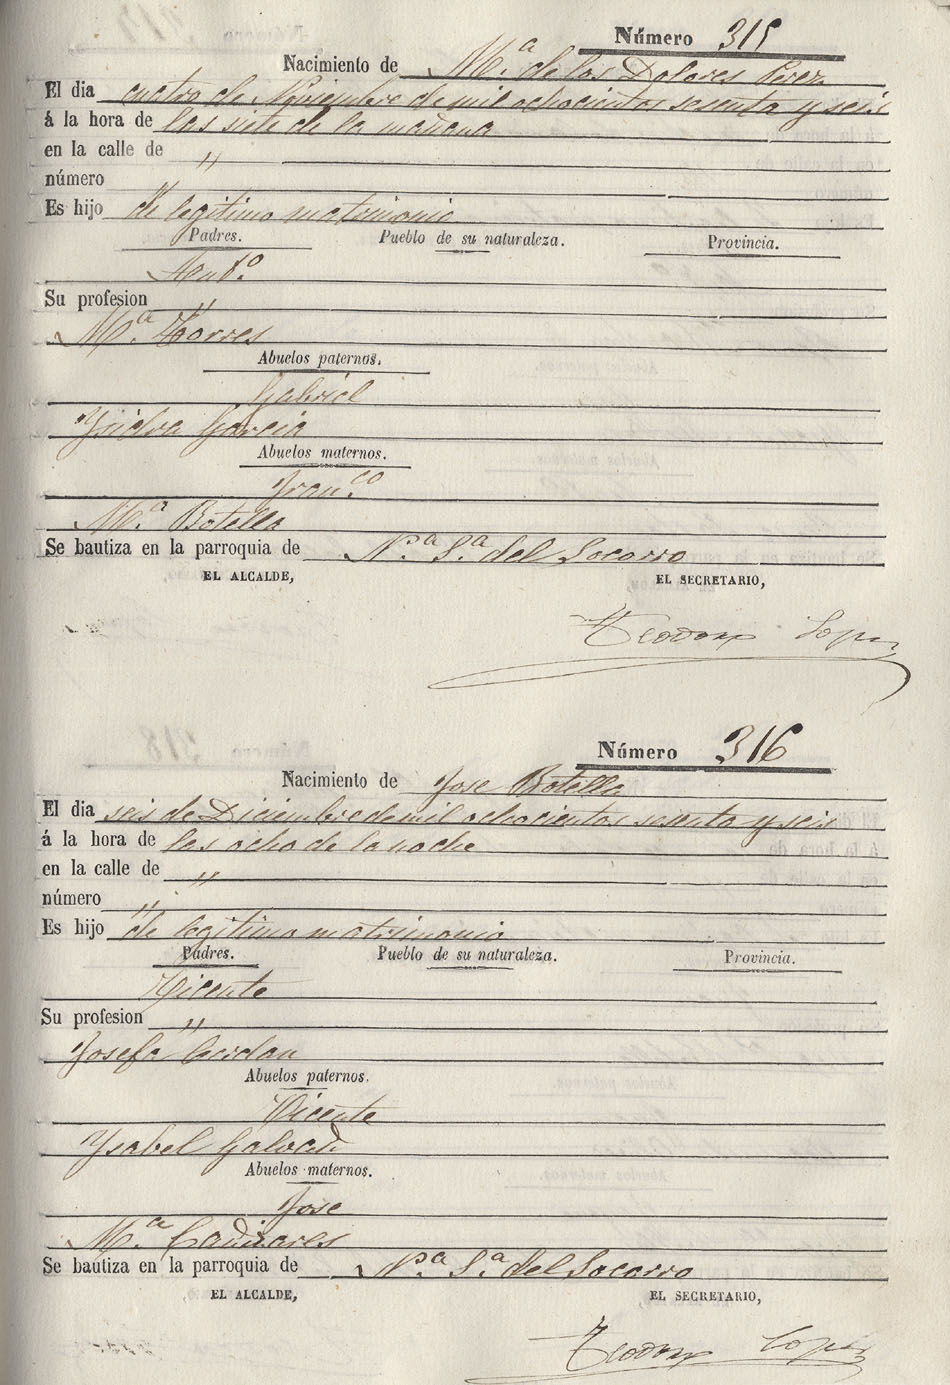 Número 315
Nacimiento de Mª. de los Dolores Perez
El dia cuatro de Noviembre de mil ochocientos sesenta y seis
á la hora de las siete de la mañana
en la calle de "
número "
Es hijo de legitimo matrimonio
Padres. Pueblo de su naturaleza. Provincia.
Antº.
Su profesion "
Mª. Torres
Abuelos paternos.
Gabriel
Ysidra Garcia
Abuelos maternos.
Franᶜᵒ
Mª Botella
Se bautiza en la parroquia de Nª. Sª. del Socorro
EL ALCALDE, EL SECRETARIO,
Teodoro Lopez
Número 316
Nacimiento de Jose Botella
El dia seis de Diciembre de mil ochocientos sesenta y seis
á la hora de las ocho de la noche
en la calle de "
número "
Es hijo de legitimo matrimonio
Padres. Pueblo de su naturaleza. Provincia.
Vicente
Su profesion "
Josefa
Abuelos paternos.
Vicente
Ysabel
Abuelos maternos.
Jose
Mª. Cañizares
Se bautiza en la parroquia de Nª. Sª. del Socorro
EL ALCALDE, EL SECRETARIO,
Teodoro Lopez